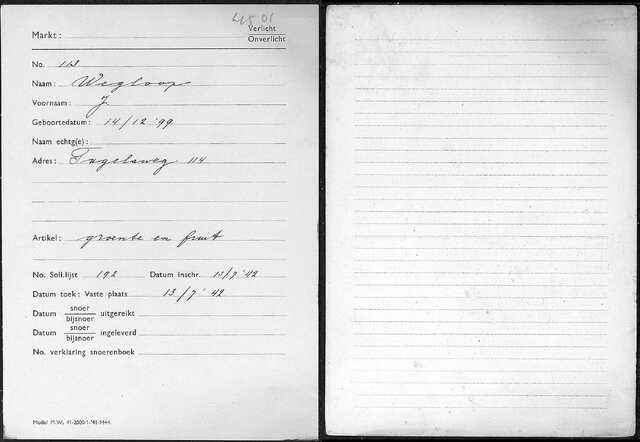 Markt:
Verlicht
Onverlicht
No. 113
Naam: Wegloop
Voornaam: J.
Geboortedatum: 14/12 '99
Naam echtg(e):
Adres: Engelsweg 114
Artikel: groente en fruit
No. Soll.lijst 192 Datum inschr. 13/7 '42
Datum toek: Vaste plaats 13/7' 42
Datum snoer / bijsnoer uitgereikt
Datum snoer / bijsnoer ingeleverd
No. verklaring snoerenboek
Model M.W. 41-2000-1-'41-1444.